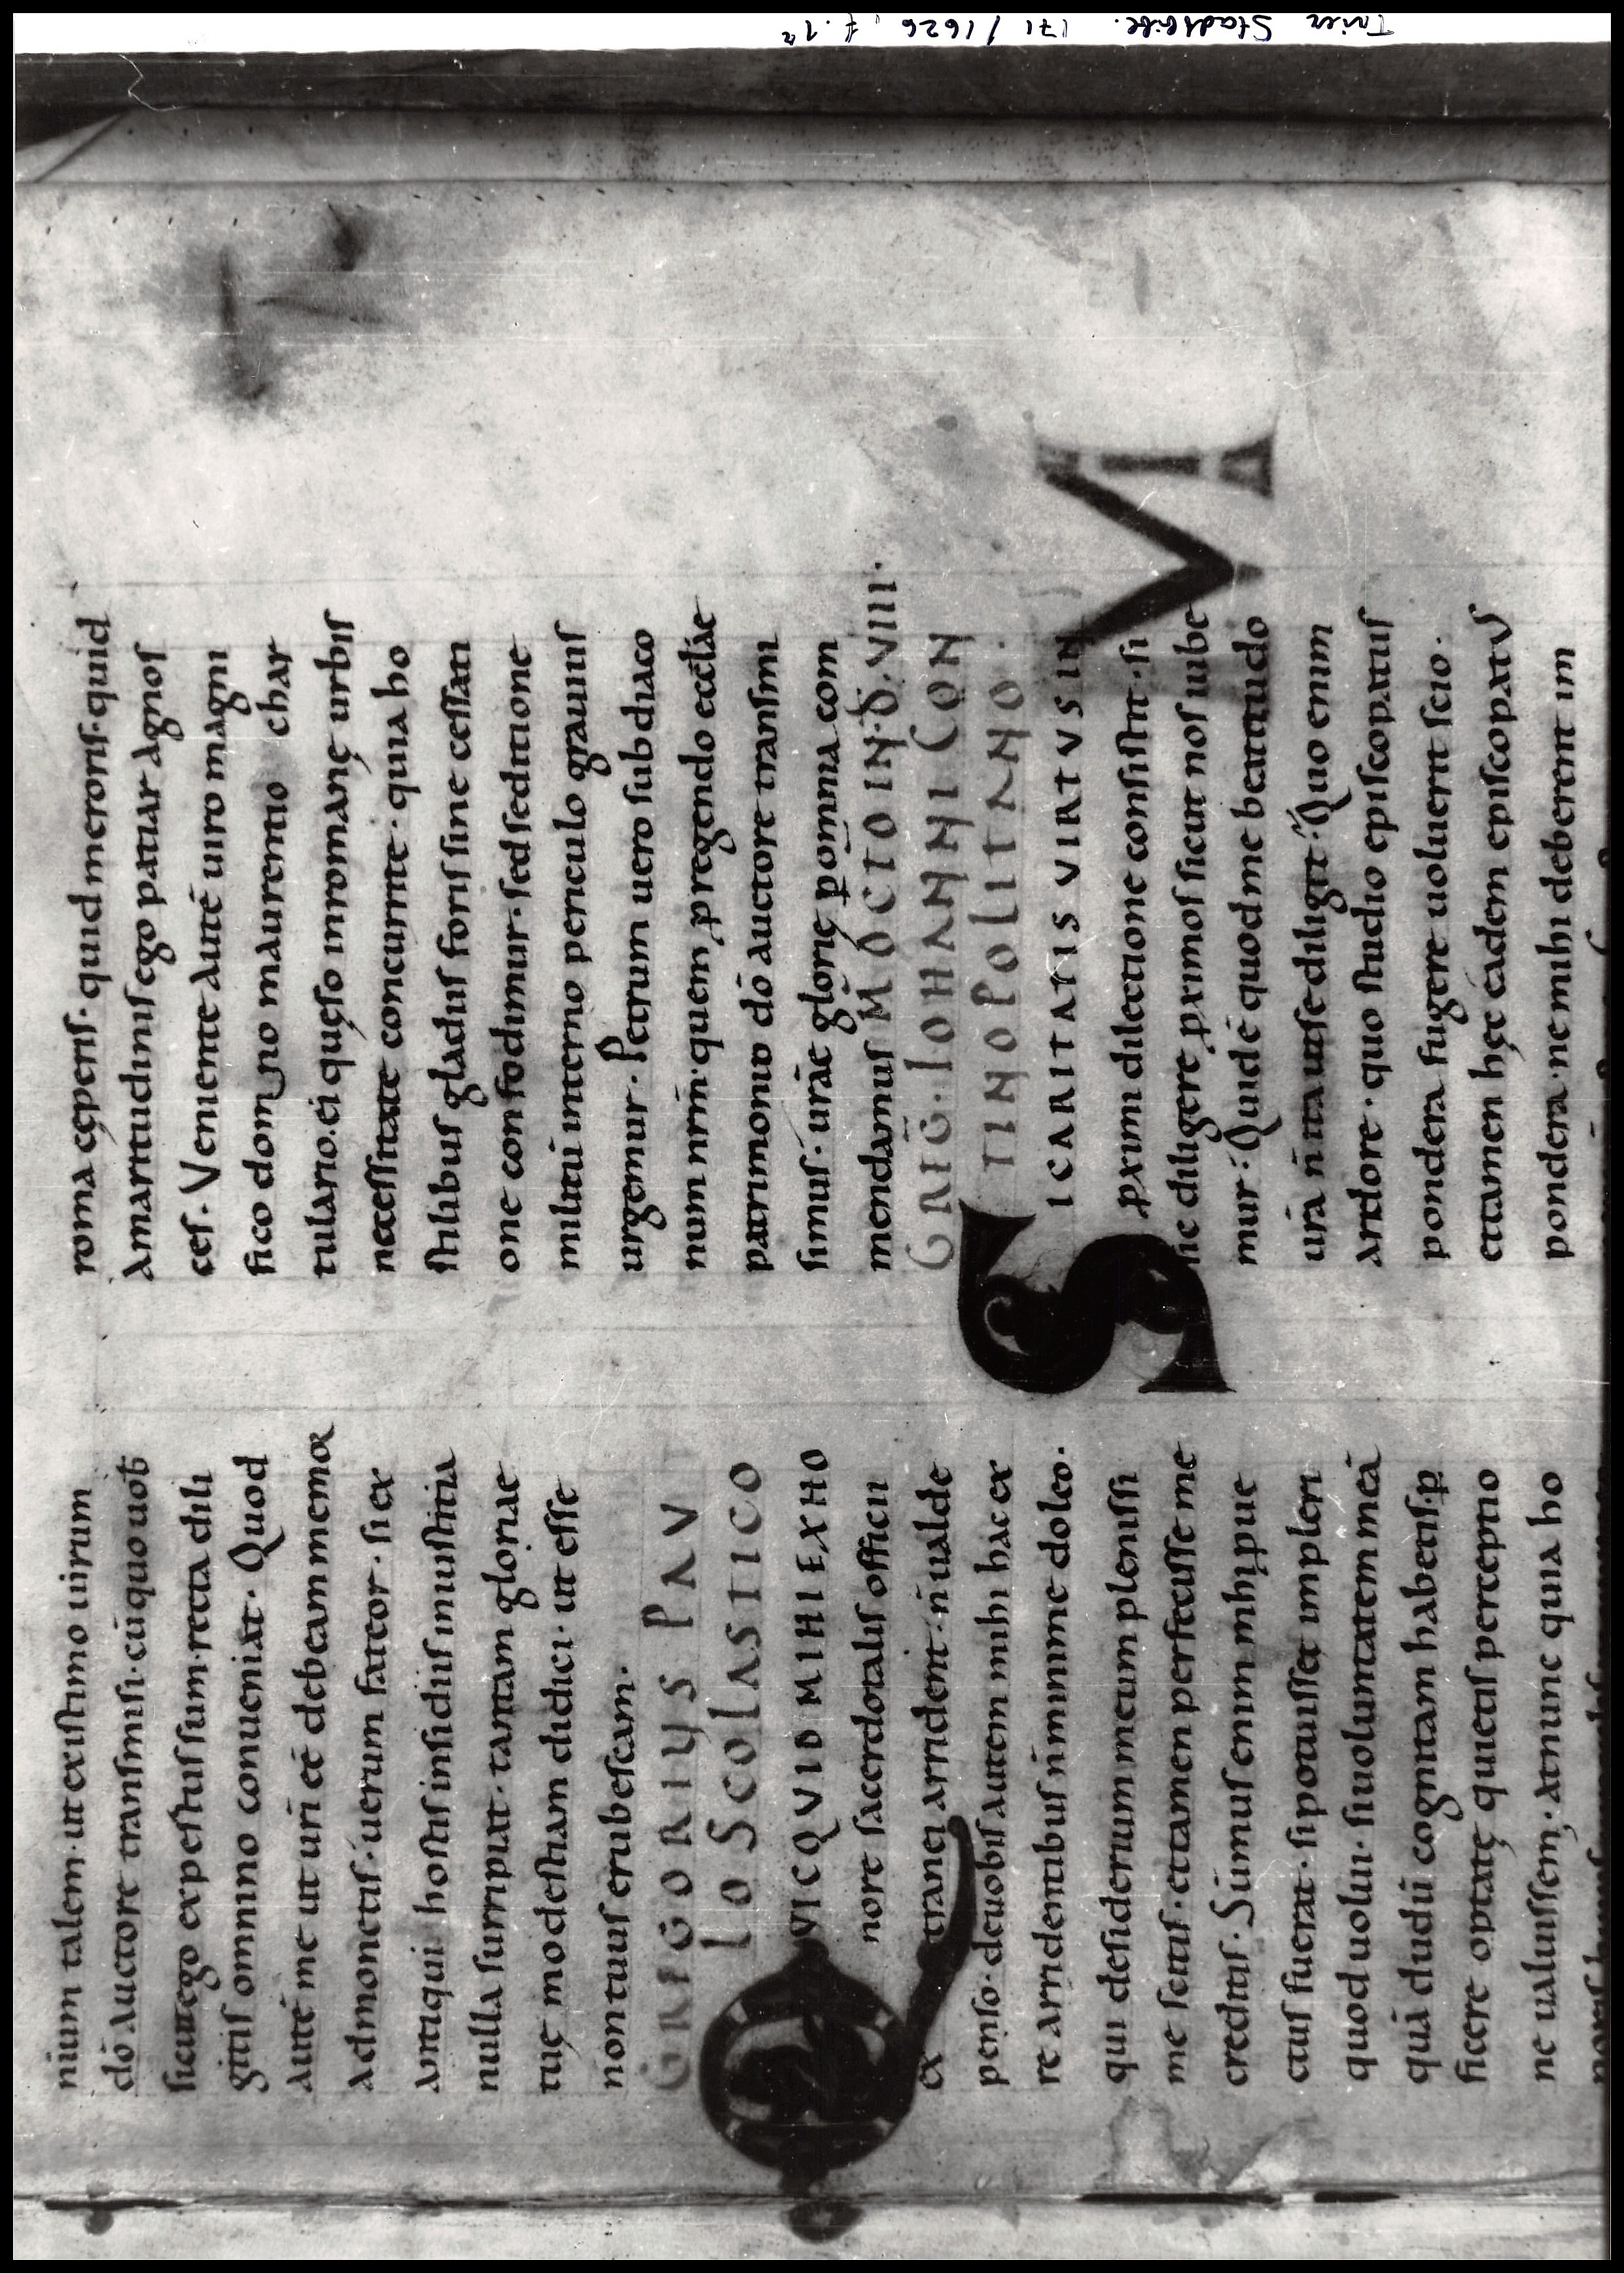 Trier Stadtbibl. 171 / 1626, f. 1ʳ
niūm talem· ut existimo uirum
dō auctore transmisi· cūquo uob̄
sicut ego expestus sum· recta dili
gitis omnino conueniat· Quod
autē me ut ur̄i eē debeam memor
admonetis· uerum fateor· si ex
antiqui hostis insidiis iniustitia
nulla surripiat· tantam gloriae
tuę modestiam didici· ut esse
non tuus erubescam·
GRIGORIUS PAV
LO SCOLASTICO
QVICQVID MIHI EX HO
nore sacerdotalis officii
extranei arrident· n̄ ualde
penso· de uobis autem mihi hac ex
re arridentibus n̄ minime doleo·
qui desiderium meum plenissi
me scitis· et tamen perfecisse me
creditis· Summus enim mihi pue
ctus fuerat· si potuisset impleri
quod uolui· si uoluntatem meā
quā dudū cognitam habetis· ꝑ
ficere optatę quietis perceptio
ne ualuissem· at nunc quia ho
roma cęperis· quid meroris· quid
amaritudinis ego patiar agnos
ces· Veniente autē uiro magni
fico domno maurentio char
tulario· ei quęso in romanę urbis
necessitate concurrite· quia ho
stilibus gladiis foris sine cessati
one confodimur· sed seditione
militū interno periculo grauius
urgemur· Petrum uero subdiaco
num nrm̄· quem ꝓ regendo eccłae
patrimonio dō auctore transmi
simus· urāe glorię ꝑ omnia com
mendamus M̄ OCTO IN·D·VIII·
GRIG· IOHANNI CON
TINOPOLITANO·
SI CARITATIS VIRTVS IN
ꝓximi dilectione consistit· si
sic diligere ꝓximos sicut nos iube
mur· Quid ē quod me beatitudo
ur̄a n̄ ita ut se diligit· Quo enim
ardore· quo studio episcopatus
pondera fugere uoluerit scio·
et tamen hęc eadem episcopatV
pondera· ne mihi deberent im